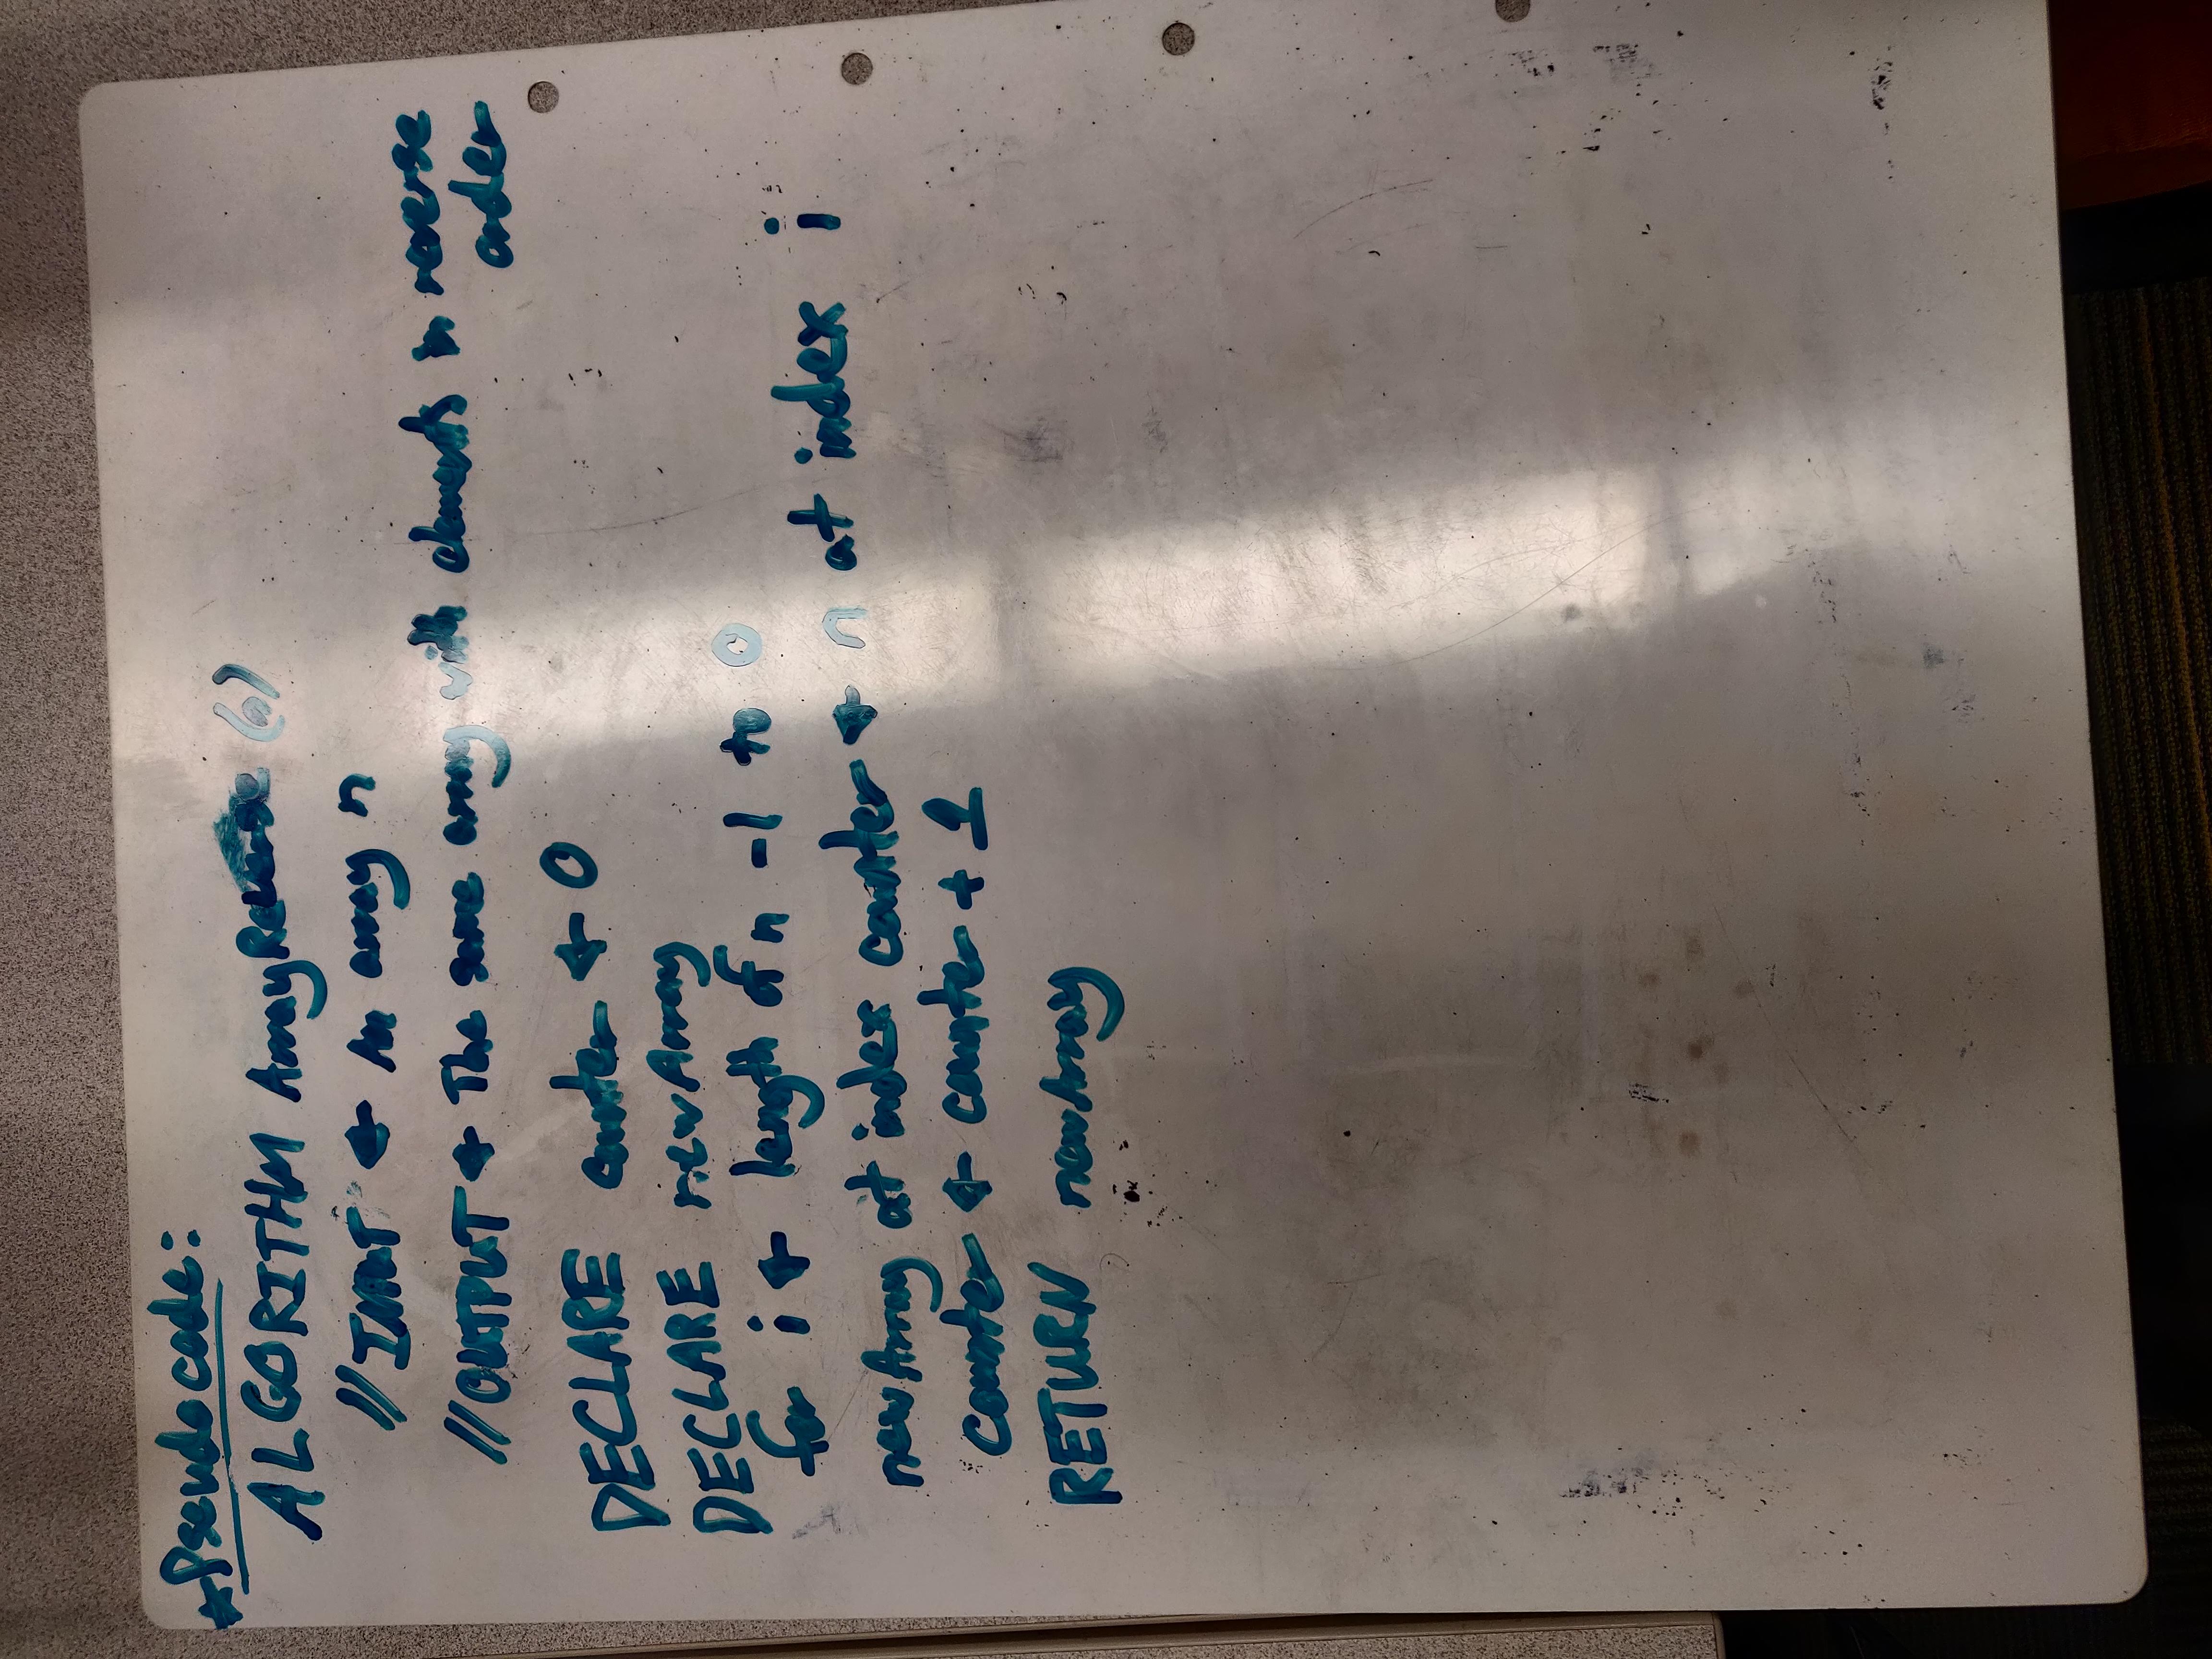 *Pseudocode:
ALGORITHM ArrayReverse (n)
//INPUT ← An array n
//OUTPUT ← The same array with elements in reverse
order
DECLARE counter ← 0
DECLARE newArray
for i ← length of n -1 to 0
newArray at index counter ← n at index i
counter ← counter + 1
RETURN newArray